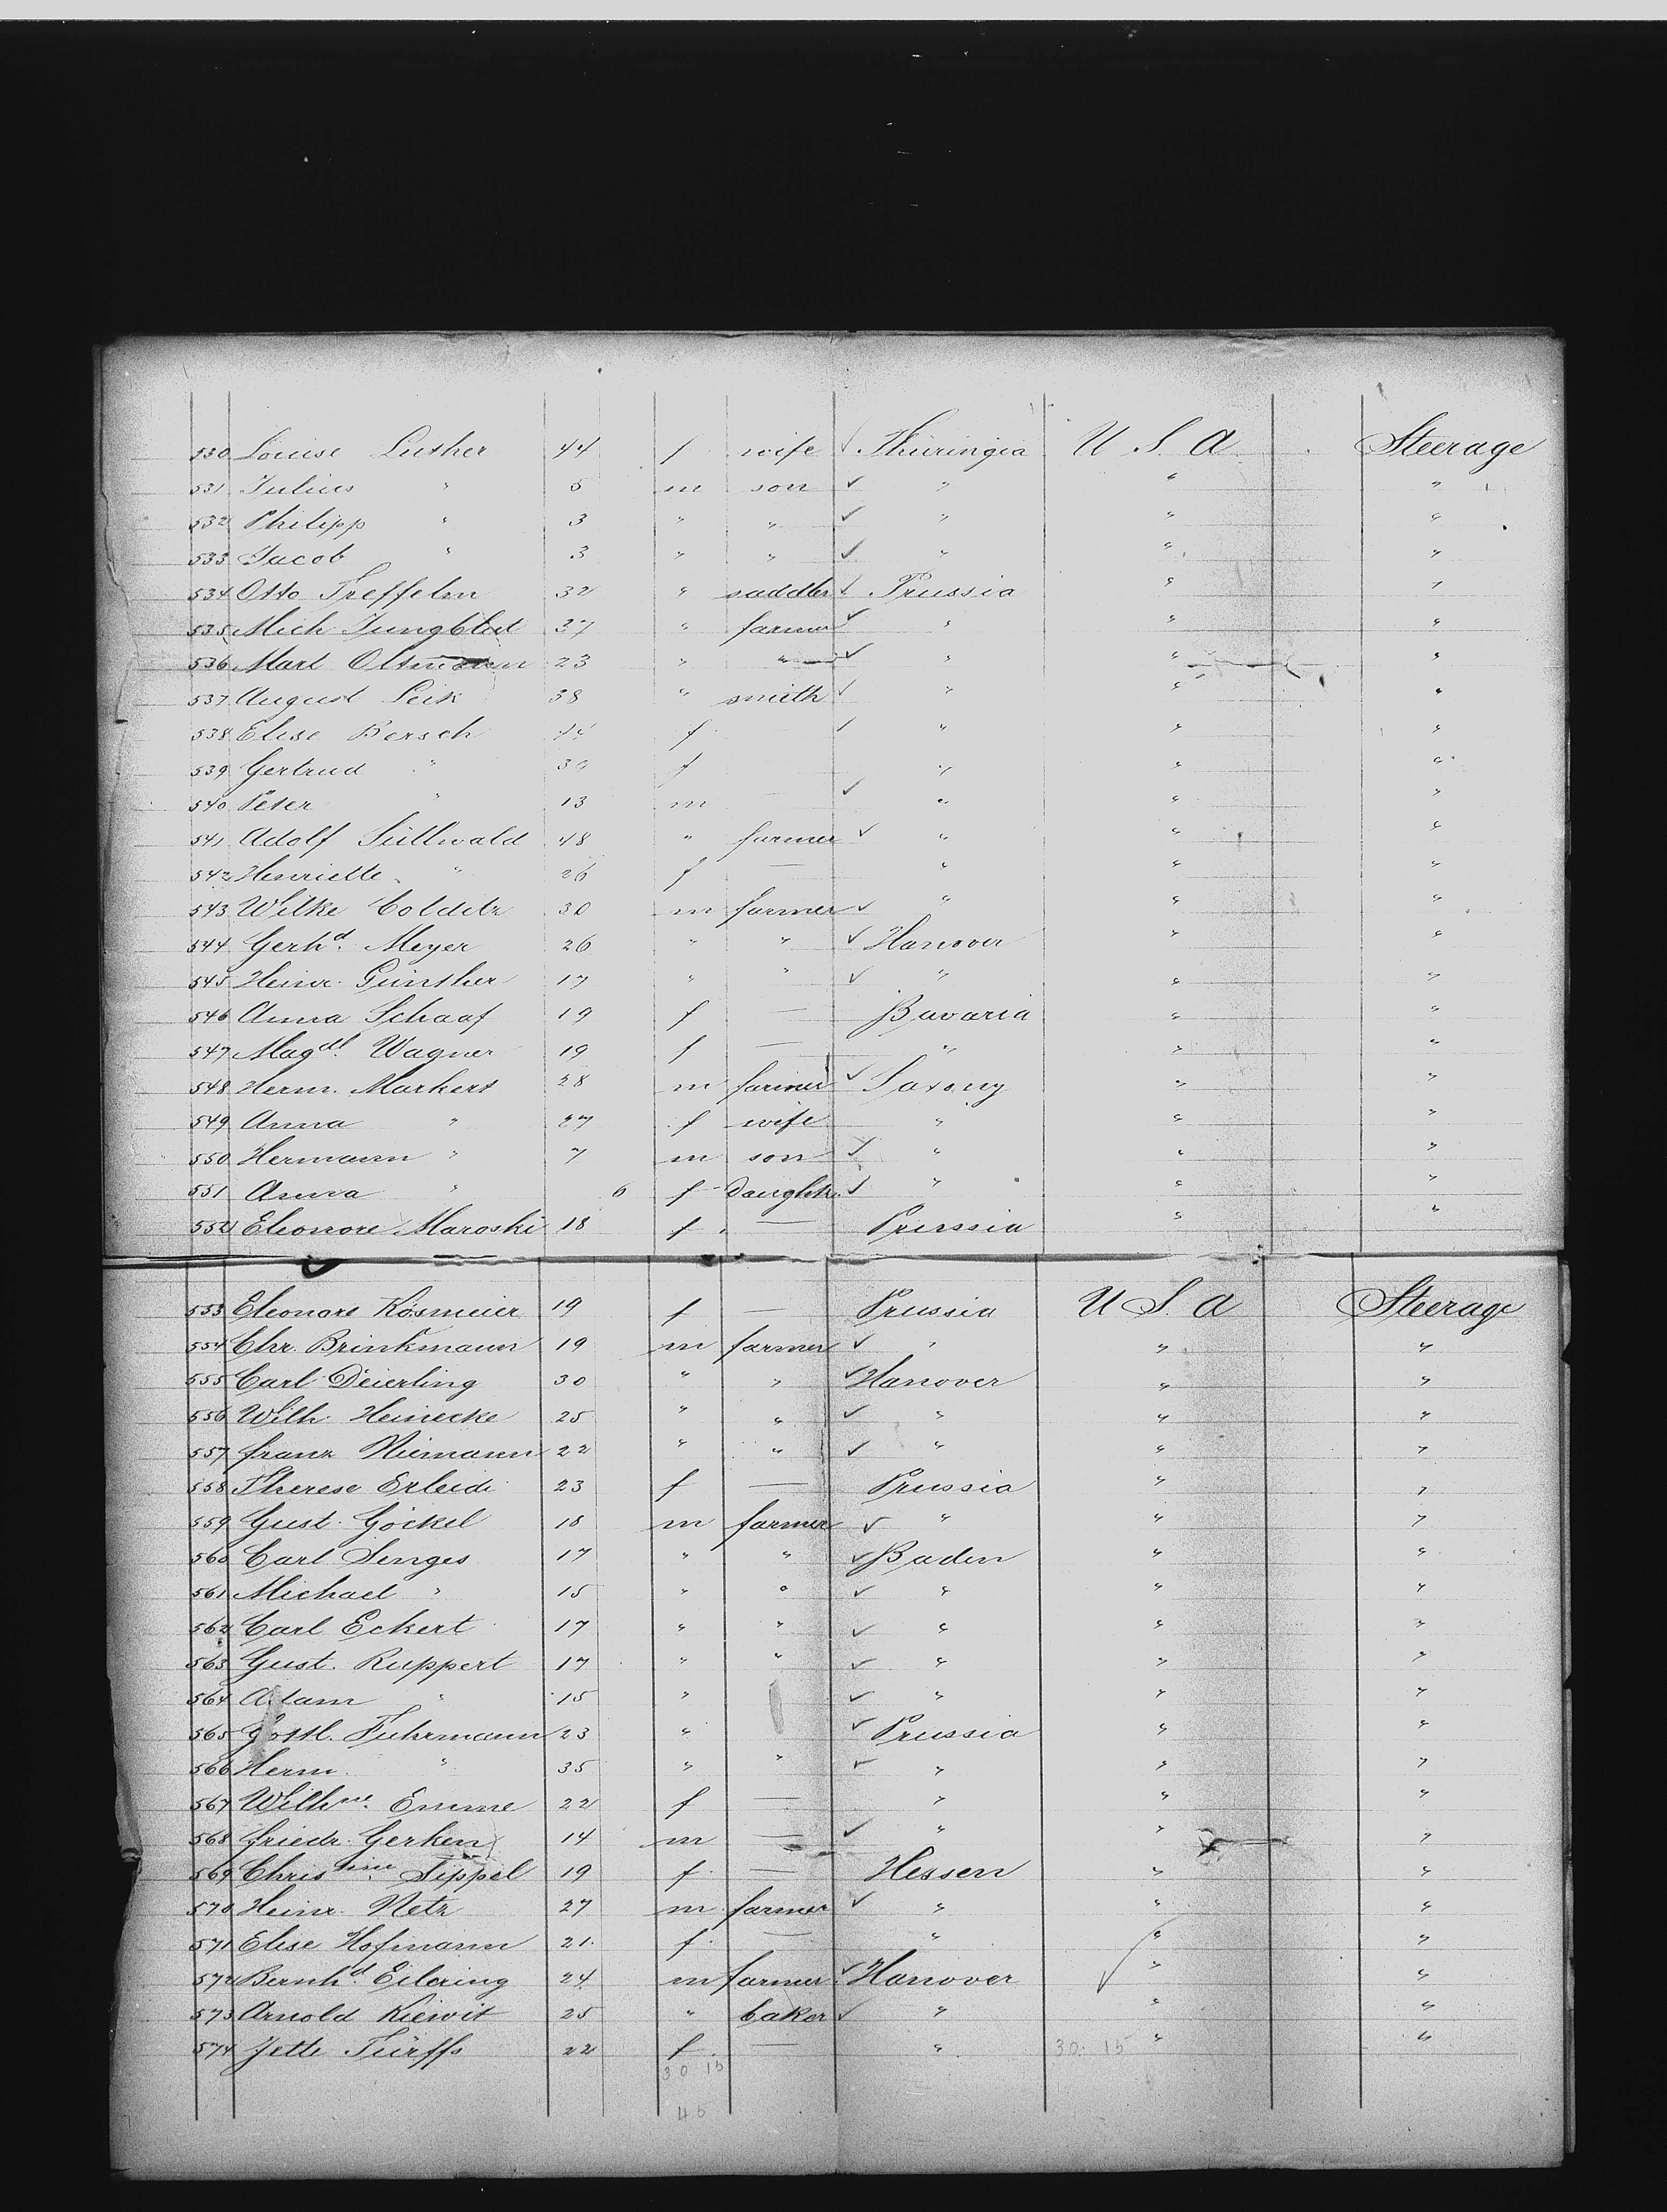 530 Louise Luther 44 f wife ✓ Thüringia U S. A. Steerage
531 Julius " 6 m son ✓ " " "
532 Philipp " 3 " " ✓ " " "
533 Jacob " 3 " " ✓ " " "
534 Otto Treffelen 32 " saddler ✓ Prussia " "
535 Mich. Jungblut 27 " farmer ✓ " " "
536 Mart Oltmann 23 " " ✓ " " "
537 August Leik 38 " smith ✓ " " "
538 Elise Bersch f ✓ " " "
539 Gertrud " f " " "
540 Peter " 13 m ✓ " " "
541 Adolf Süllwald 48 " farmer ✓ " " "
542 Henriette " 26 f — " " "
543 Wilke Colditz 30 m farmer ✓ " " "
544 Gerhd. Meyer 26 " " ✓ Hanover " "
545 Heinr. Günther 17 " " ✓ " " "
546 Anna Schaaf 19 f — Bavaria " "
547 Magdl. Wagner 19 f — " " "
548 Herm. Markert 28 m farmer ✓ Saxony " "
549 Anna " 27 f wife " " "
550 Hermann " 7 m son ✓ " " "
551 Anna " 6 f daughter ✓ " " "
552 Eleonore Maroski 18 f — Prussia " "
553 Eleonore Kösmeier 19 f — Prussia U S. A Steerage
554 Chr. Brinkmann 19 m farmer ✓ " " "
555 Carl Deierling 30 " " ✓ Hanover " "
556 Wilh. Heinecke 25 " " ✓ " " "
557 Franz Niemann 22 " " ✓ " " "
558 Therese Erleidi 23 f — Prussia " "
559 Gust. Göckel 18 m farmer ✓ " " "
560 Carl Senges 17 " " ✓ Baden " "
561 Michael " 15 " " ✓ " " "
562 Carl Eckert 17 " " ✓ " " "
563 Gust. Ruppert 17 " " ✓ " " "
564 Adam " 15 " ✓ " " "
565 Gottl. Fuhrmann 23 " ✓ Prussia " "
566 Herm. " 35 " " ✓ " " "
567 Wilhne. Emme 22 f — " " "
568 Friedr. Gerken 14 m — ✓ " " "
569 Christine Sippel 19 f. — Hessen " "
570 Heinr. Netz 27 m farmer ✓ " " "
571 Elise Hofmann 21. f. — " " "
572 Bernhd. Eilering 24 m farmer ✓ Hanover " "
573 Arnold Kiewit 25 " baker ✓ " " "
574 Jette Türffs 22 f. — " 30. 15 " "
30 15
45